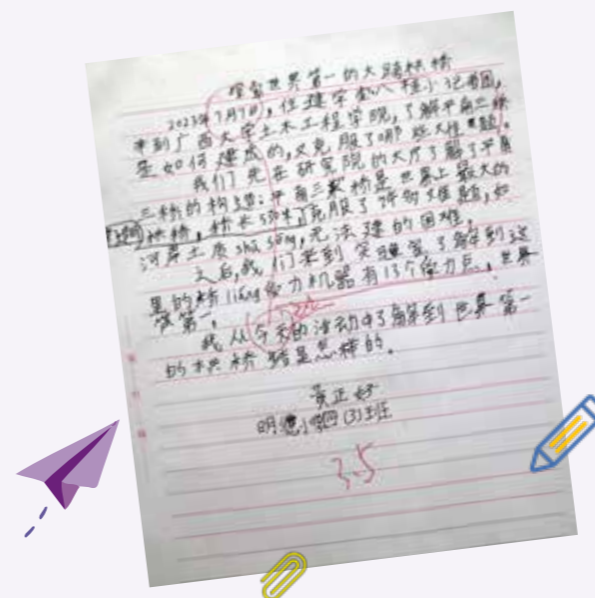 学习世界第一的大跨拱桥
2023年7月7日,住建学
来到广西大学土木工程学院,了解平南三桥
是如何建成的,又克服了哪些大难题。
我们先在研究院的大厅了解了平南
三桥的构造:平南三桥是世界上最大的
拱桥,桥长 克服了许多难题,如
河岸土质shū sōng,无法建的困难。
之后,我们来到实验室了解到这
里的 liàng 力机器有13个 力点,世界
第一。
我从今天的活动中了解到世界第一
的拱桥 是怎样的。
黄正好
明德小学四(3)班
35